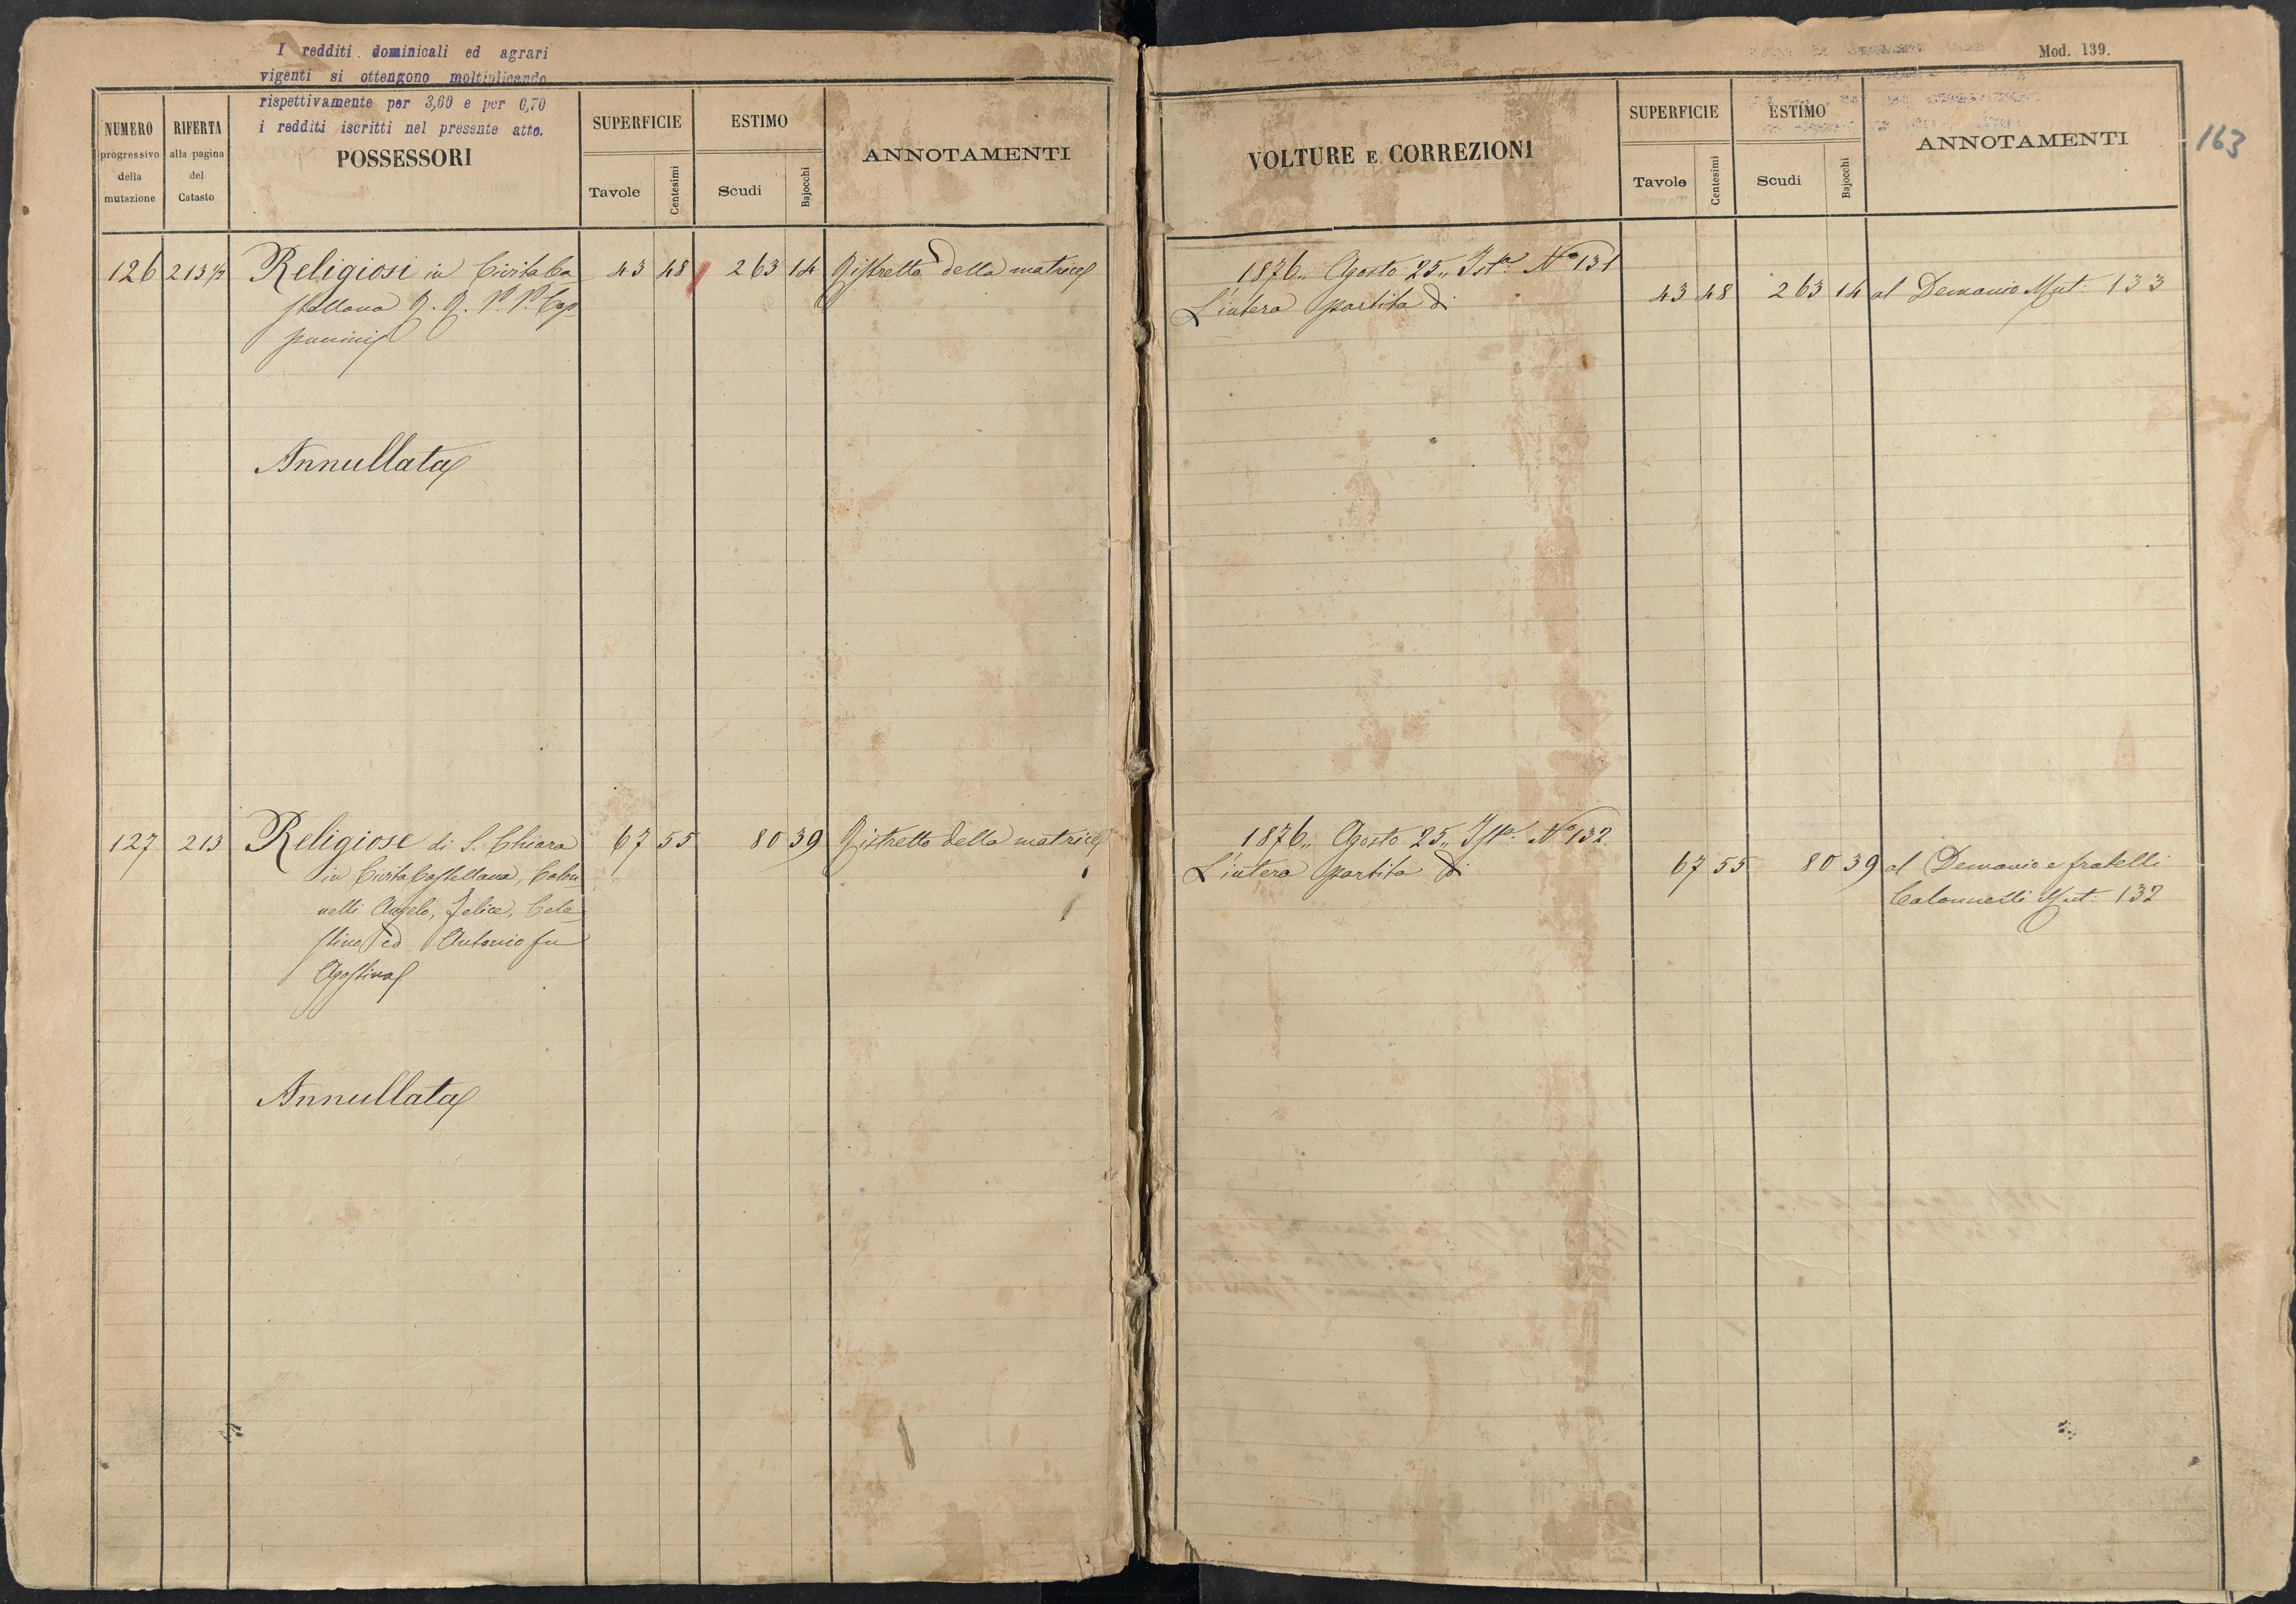 I redditi dominicali ed agrari
vigenti si ottengono moltiplicando
rispettivamente per 3,60 e per 0,70
i redditi iscritti nel presente atto.
NUMERO
progressivo
della
mutazione
RIFERTA
alla pagina
del
Catasto
POSSESSORI
SUPERFICIE
Tavole
Centesimi
ESTIMO
Scudi
Bajocchi
ANNOTAMENTI
126 213½ Religiosi in Civita Ca 43 48 263 14 Ristretto della matrice
stellana R. R. P. P. Cap
puccini
Annullata
127 213 Religiose di S. Chiara 67 55 80 39 Ristretto della matrice
in Civita Castellana, Colon
nelli Angelo, Felice, Cele
stino ed Antonio fu
Agostino
Annullata
Mod. 139.
163
VOLTURE E CORREZIONI
SUPERFICIE
Tavole
Centesimi
ESTIMO
Scudi
Bajocchi
ANNOTAMENTI
1876.. Agosto 25.. Ista. No 131
L'intera partita di 43 48 263 14 al Demanio Mut. 133
1876.. Agosto 25.. Ista. No 132
L'intera partita di 67 55 80 39 al Demanio e fratelli
Colonnelli Mut. 132